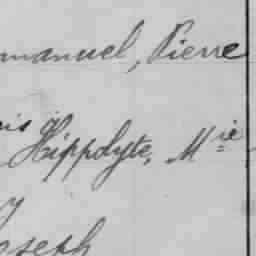 mmanuel, Pierre
is
Hippolyte, Mie
y
oseph